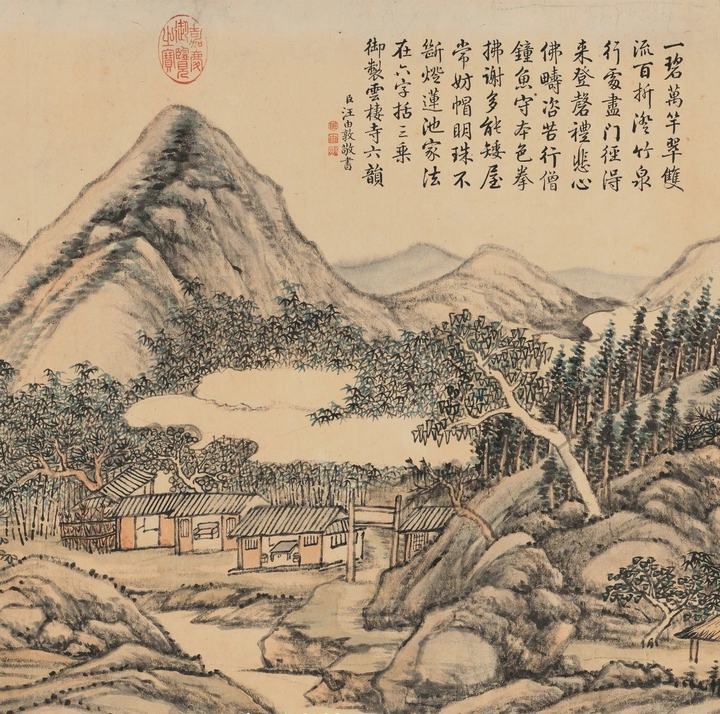 一碧萬竿翠雙
流百折澄竹泉
行處盡門徑淂
来登磬禮悲心
佛疇咨苦行僧
鐘魚守本色拳
拂謝多能矮屋
常妨帽明珠不
斷燈蓮池家法
在六字括三乗
御製雲棲寺六韻
臣汪由敦敬書
嘉慶御覽之寶